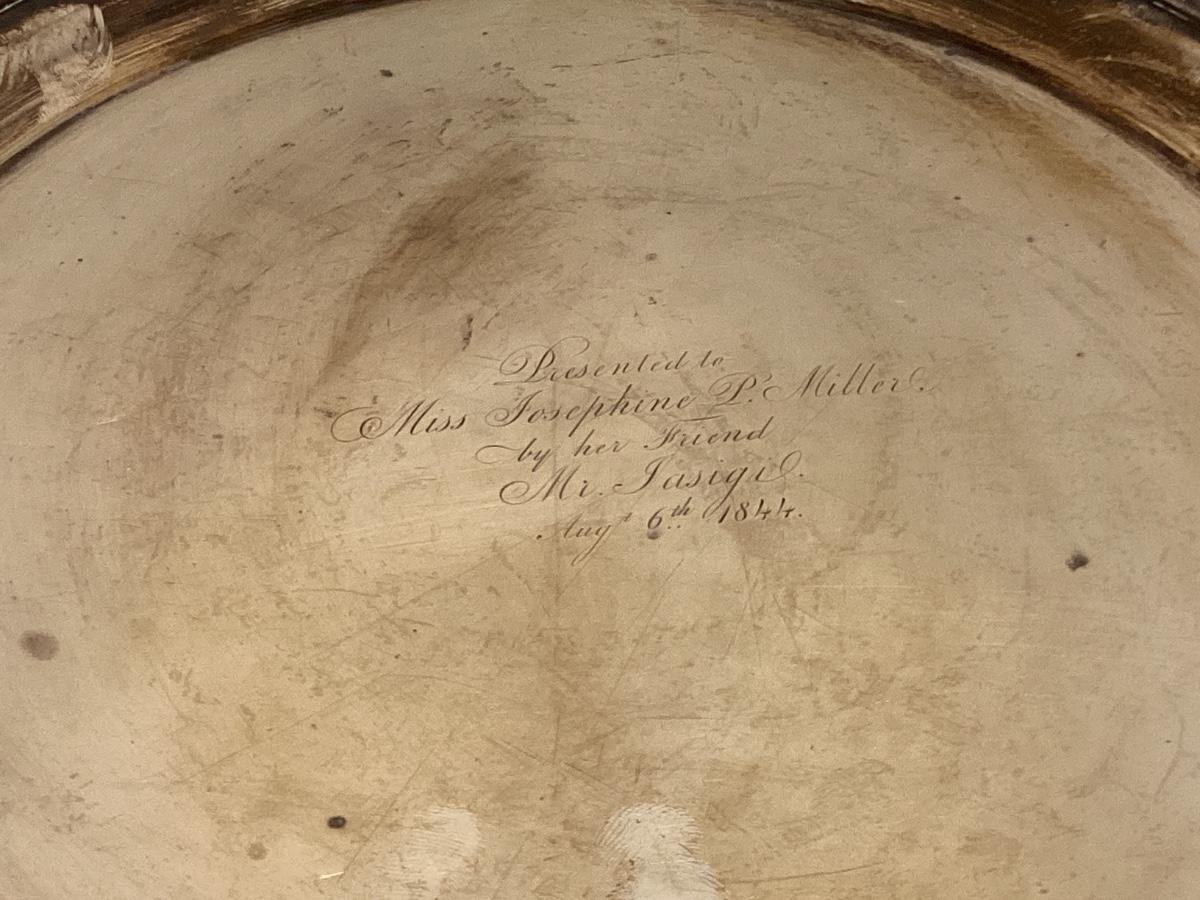 Presented to
Miss Josephine P. Miller.
by her Friend
Mr. Iasigi.
Augt 6th 1844.